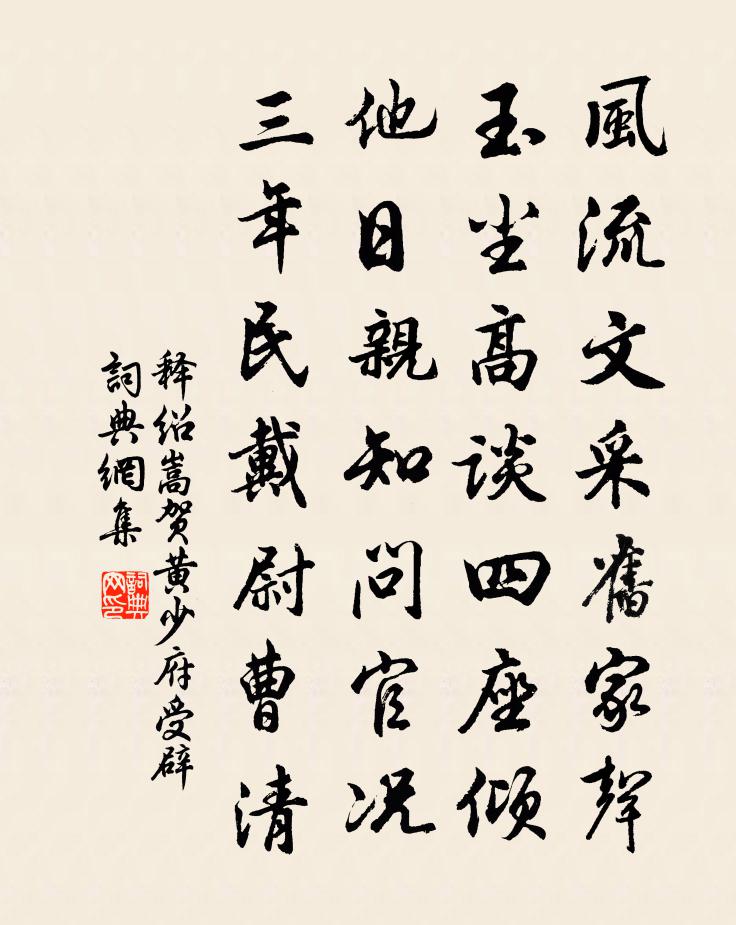 風流文采舊家聲
玉尘高談四座傾
他日親知問官况
三年民戴尉曹清
释绍嵩贺黄少府受辟
詞典網集
詞典网印